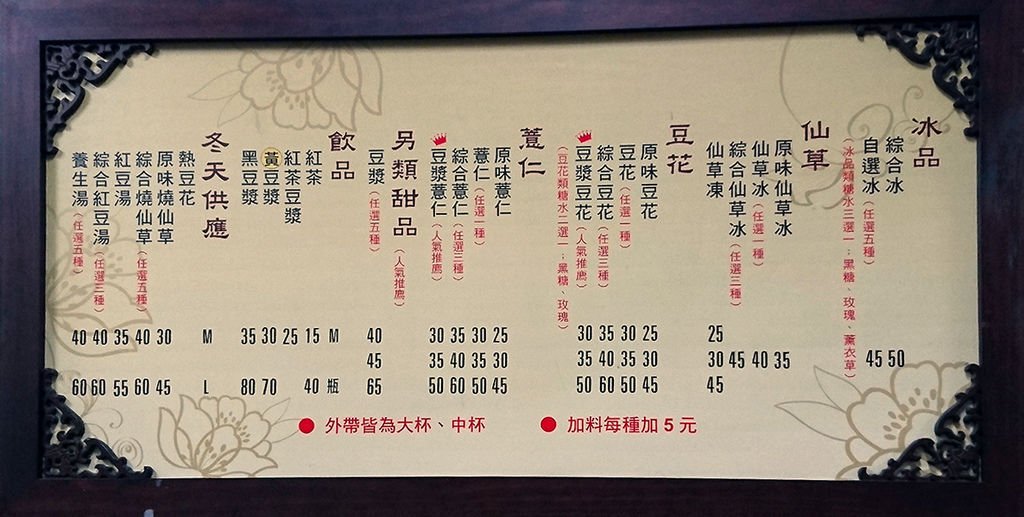 冰品
綜合冰 50
自選冰（任選五種） 45
（冰品類糖水三選一；黑糖、玫瑰、薰衣草）
仙草
原味仙草冰 35
仙草冰（任選一種） 40
綜合仙草冰（任選三種） 45
仙草凍 25 30 45
豆花
原味豆花 25 30 45
豆花（任選一種） 30 35 50
綜合豆花（任選三種） 35 40 60
豆漿豆花（人氣推薦） 30 35 50
（豆花類糖水三選一；黑糖、玫瑰）
薏仁
原味薏仁 25 30 45
薏仁（任選一種） 30 35 50
綜合薏仁（任選三種） 35 40 60
豆漿薏仁（人氣推薦） 30 35 50
另類甜品（人氣推薦）
豆漿（任選五種） 40 45 65
飲品 M 瓶
紅茶 15 40
紅茶豆漿 25
黃豆漿 30 70
黑豆漿 35 80
冬天供應 M L
熱豆花
原味燒仙草 30 45
綜合燒仙草（任選五種） 40 60
紅豆湯 35 55
綜合紅豆湯（任選三種） 40 60
養生湯（任選五種） 40 60
● 外帶皆為大杯、中杯
● 加料每種加 5 元